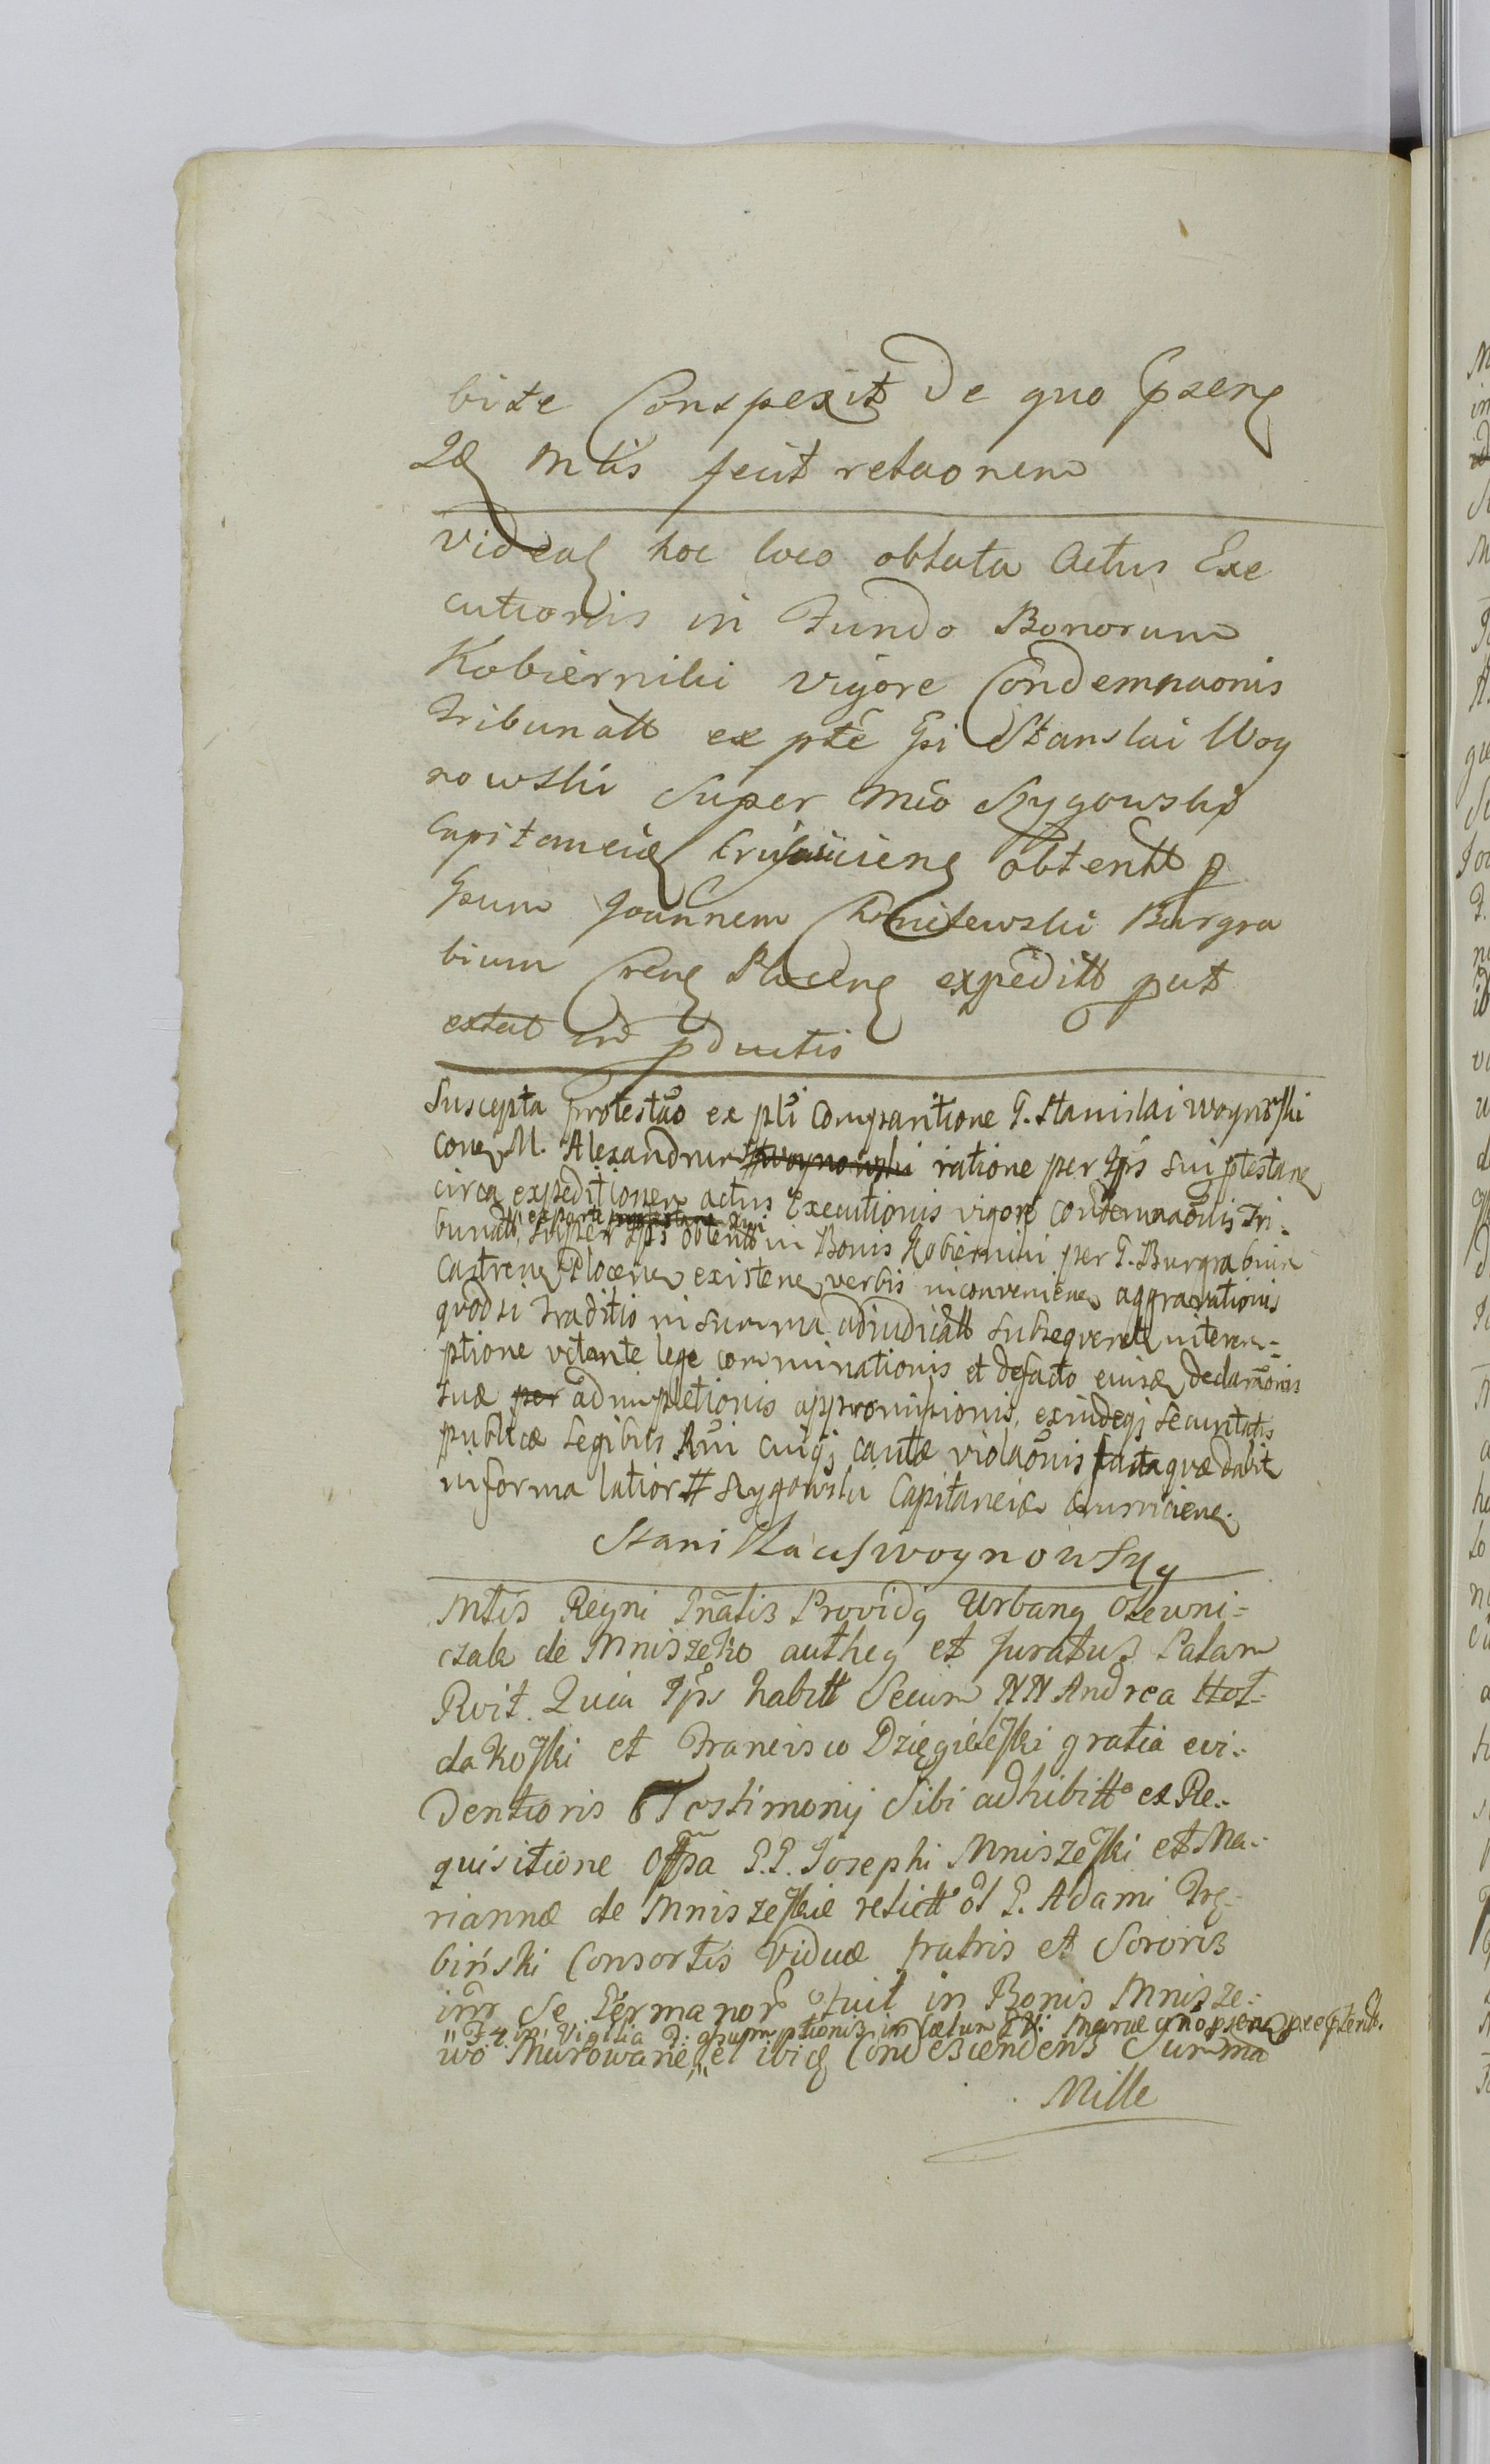 bite Conspexit De quo psens
Qd Mtis fecit relaonem
Videat hoc loco oblata Actus Exe
cutionis in Fundo Bonorum
Kobierniki vigore Condemnaonis
Tribunatt ex pte Gsi Stanslai Woy
nowski Super Mco Szygowski
Capitaneid obtentt p
Gsum Joannem Burgra
bium Crens Plocens expeditt put
extat in pductis
Suscepta protestao ex pli Comparitione G. Stanislai Woynoski
cona M. Alexandrum # Woynowski ratione per Ips sui ptestane
circa expeditionem actus Executionis vigore condemnaonis Tri-
bunatt, ex parte super Ips obtentt in Bonis Kobiernini per G. Burgrabium
Castrens Plocens existens verbis inconveniens aggravationis
quod si traditio in summa adiudicatt subsequeret interem=
ptione vetante lege comminationis et defacto eiusd declaraonis
suæ per adimpletionis appromissionis, exindeqz securitatis
publicæ Legibus Rni cuiqz cautæ violaonis facta quæ dabit
in forma latiori # Szygowski Capitaneid
Stanislaus Woynowsky
Mtis Regni Gnalis Providq Urbang Olewni=
czak de Mniszeko autheg et Juratus Palam
Rvit. Quia Ips habitt Secum NN Andrea Hol=
dakoski et Francisco Dzięgieleski gratia evi-
dentioris Testimonij Sibi adhibitt ex Re-
quisitione Offsa G.G. Josephi Mniszeski et Ma-
riannæ de Mniszeskie relictt ol G. Adami Trę-
biński Consortis Viduæ fratris et Sororis
intr Se Germanor fuit in Bonis Mnisze-
"F4 in Vigilia F: assumptionis in Cælum BV: Mariæ
wo Murowane," et ibiq Condescendens Summa
Mille